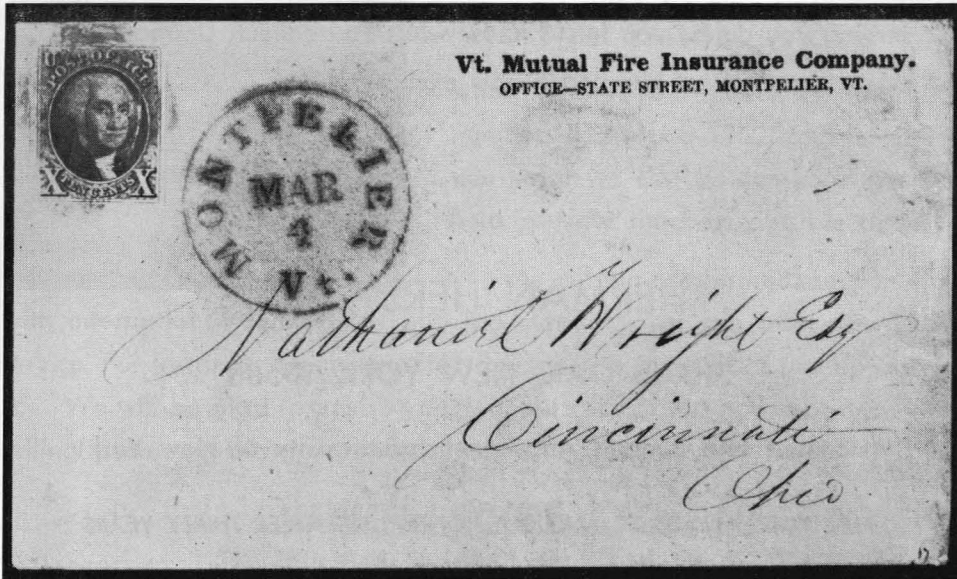 U S
POST OFFICE
X TEN CENTS X
Vt. Mutual Fire Insurance Company.
OFFICE—STATE STREET, MONTPELIER, VT.
MONTPELIER
MAR
4
Vt.
Nathaniel Wright Esq
Cincinnati
Ohio